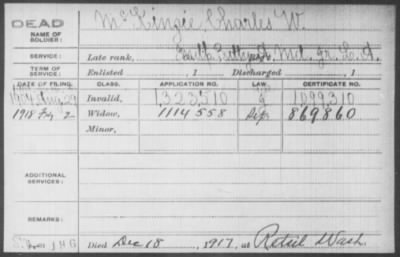 DEAD
NAME OF SOLDIER: McKinzie, Charles W.
SERVICE: Late rank, Ind.
TERM OF SERVICE: Enlisted , 1 Discharged , 1
DATE OF FILING. CLASS. APPLICATION NO. LAW. CERTIFICATE NO.
Aug 29 Invalid, 1,323,510 1099,310
1918 2 Widow, 1114 558 869860
Minor,
ADDITIONAL SERVICES:
REMARKS:
Died Dec 18, 1917, at Retsil Wash.